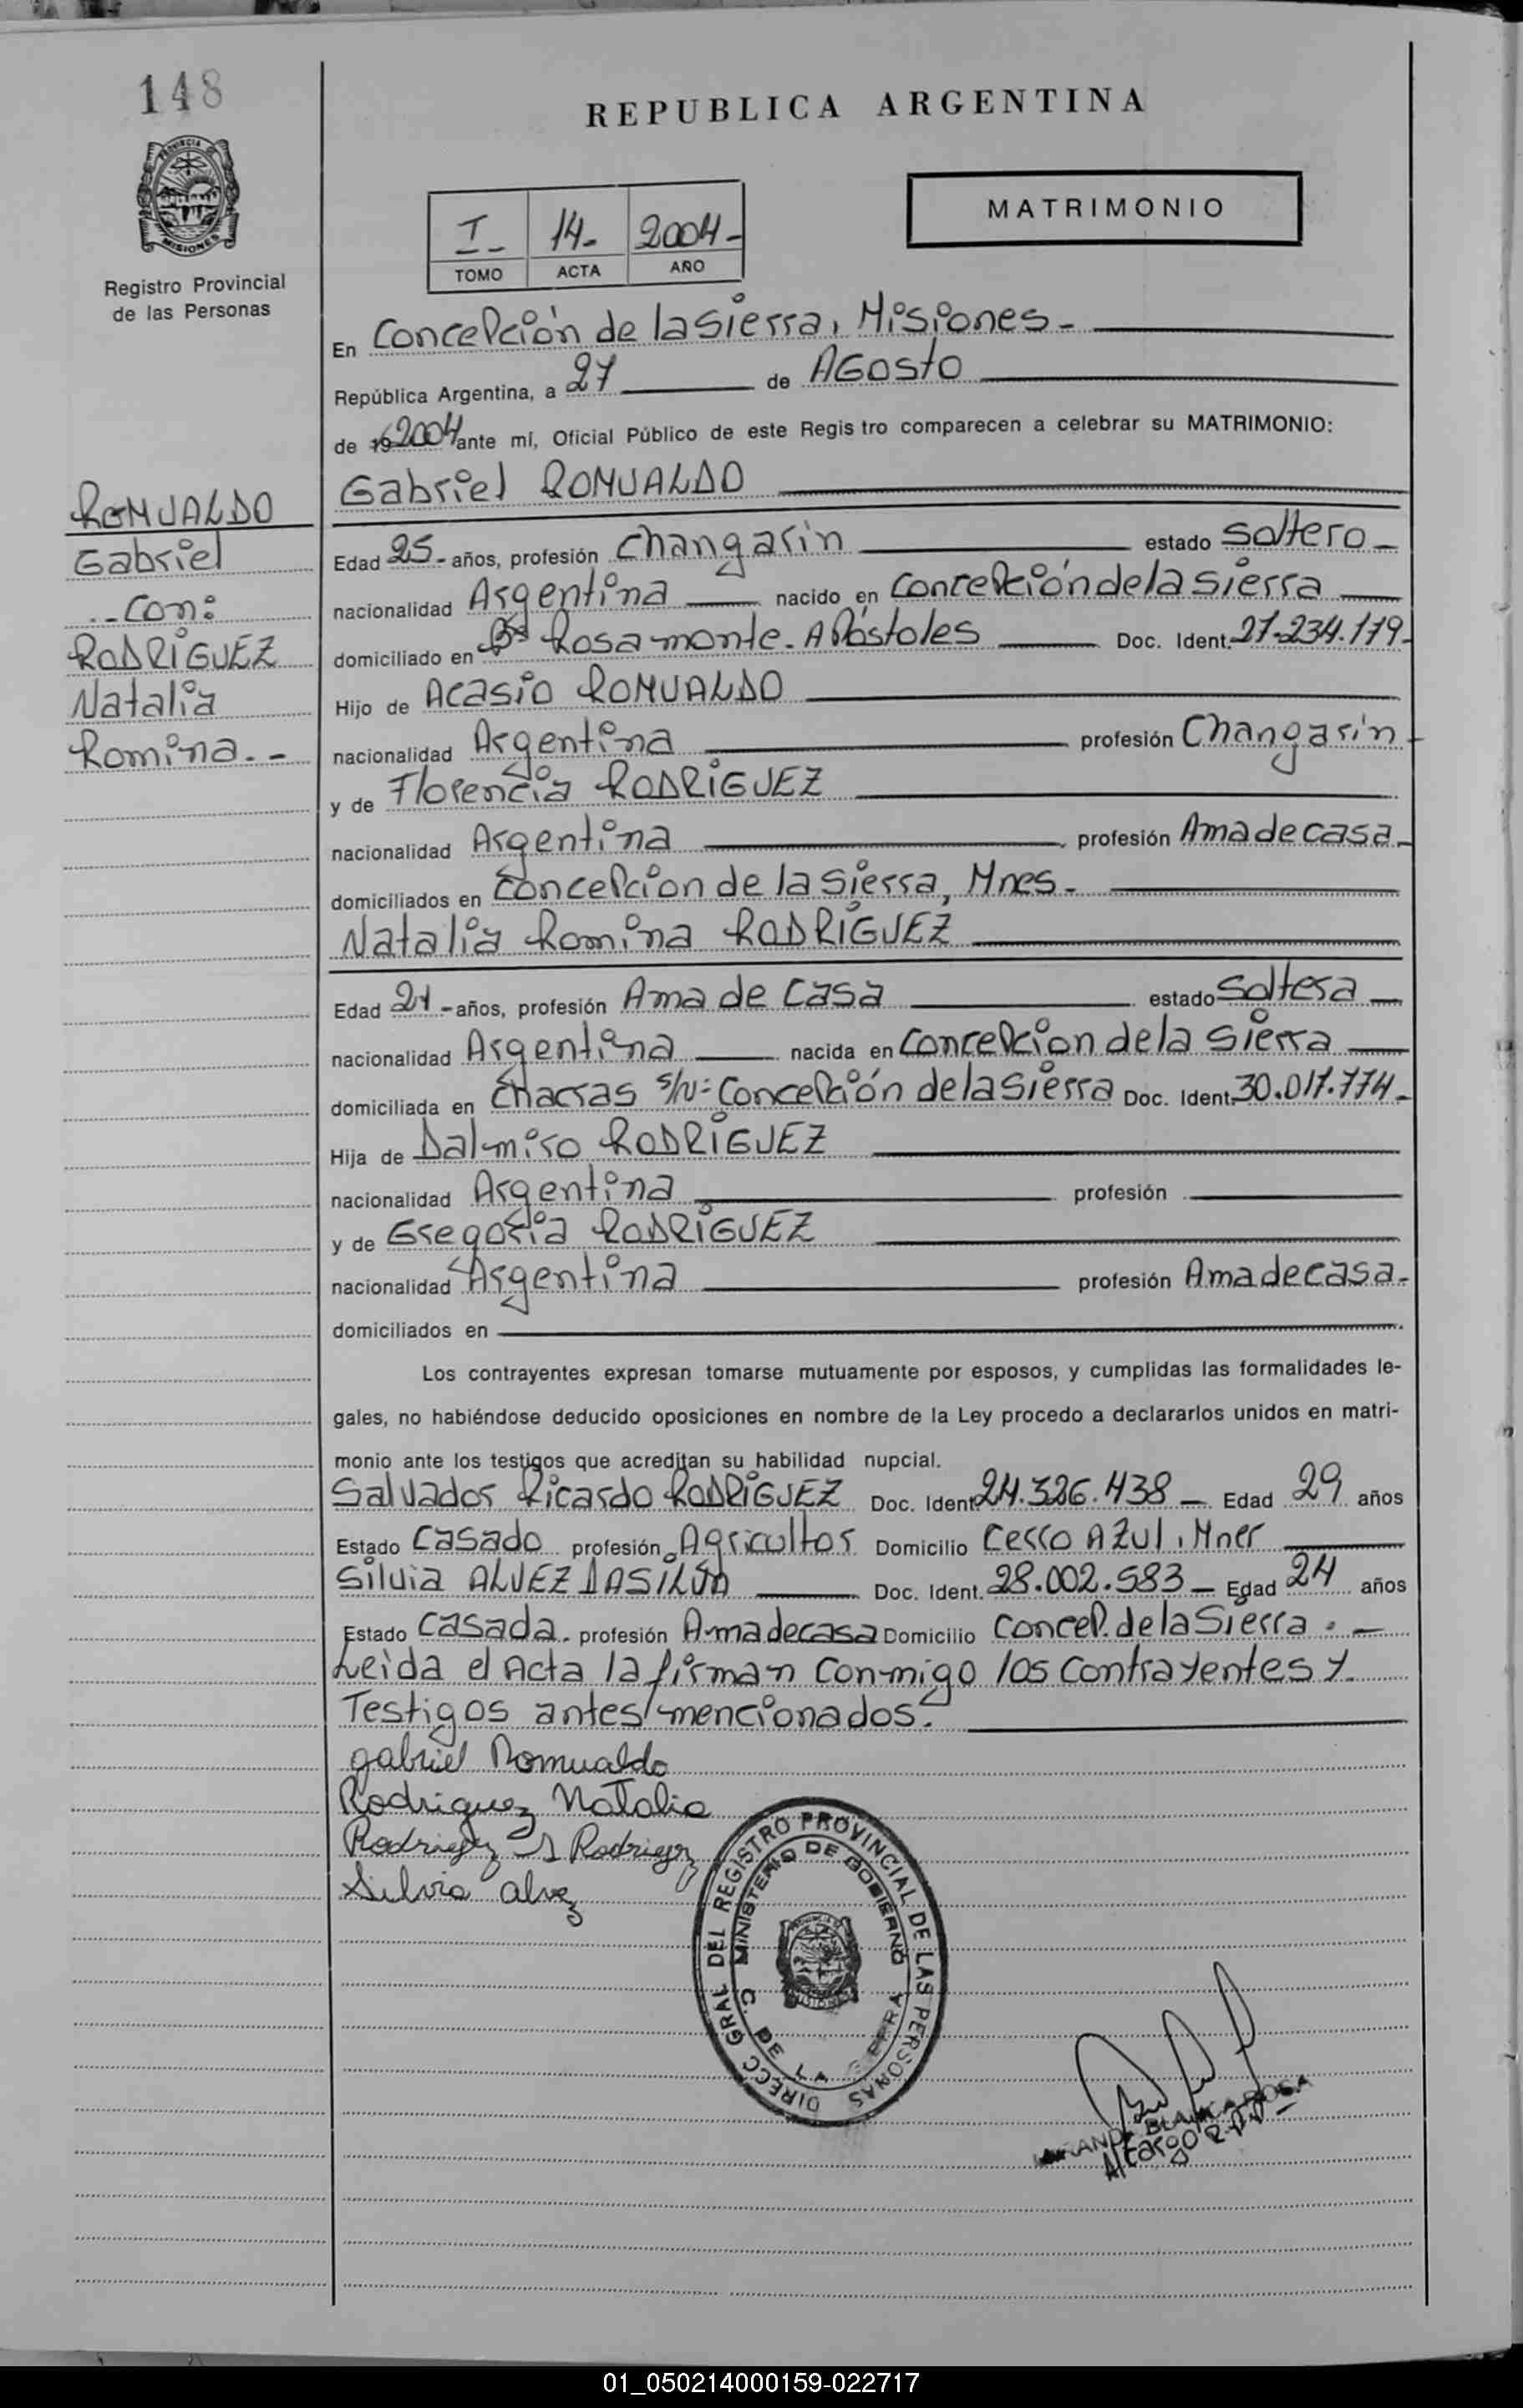 148
REPUBLICA ARGENTINA
PROVINCIA
MISIONES
MATRIMONIO
I- 14- 2004-
TOMO ACTA AÑO
Registro Provincial
de las Personas
En Concepción de la Sierra, Misiones-
República Argentina, a 27 de AGosto
de 19 2004 ante mí, Oficial Público de este Regis tro comparecen a celebrar su MATRIMONIO:
Gabriel ROMUALDO
ROMUALDO
Gabriel
..-Con:
RODRÍGUEZ
Natalia
Romina.-
Edad 25- años, profesión Changarin estado Soltero-
nacionalidad Argentina nacido en Concepción de la Sierra
domiciliado en Bº Rosamonte-Apóstoles Doc. Ident. 27-234.179-
Hijo de Acasio ROMUALDO
nacionalidad Argentina profesión Changarin-
y de Florencia RODRÍGUEZ
nacionalidad Argentina profesión Ama de casa-
domiciliados en Concepcion de la Sierra, Mnes-
Natalia Romina RODRÍGUEZ
Edad 21- años, profesión Ama de Casa estado Soltera
nacionalidad Argentina nacida en Concepcion de la Sierra
domiciliada en Chacras s/N= Concepción de la Sierra Doc. Ident. 30.017.774-
Hija de Dalmiro RODRÍGUEZ
nacionalidad Argentina profesión
y de Gregoria RODRÍGUEZ
nacionalidad Argentina profesión Ama de casa-
domiciliados en
Los contrayentes expresan tomarse mutuamente por esposos, y cumplidas las formalidades le-
gales, no habiéndose deducido oposiciones en nombre de la Ley procedo a declararlos unidos en matri-
monio ante los testigos que acreditan su habilidad nupcial.
Salvador Ricardo RODRÍGUEZ Doc. Ident. 24.326.438- Edad 29 años
Estado Casado profesión Agricultor Domicilio Cerro Azul, Mnes
Silvia ALVEZ DASILVA Doc. Ident. 28.002.583- Edad 24 años
Estado Casada. profesión Ama de casa Domicilio Concep. de la Sierra.-
Leida el Acta la firman conmigo los Contrayentes y
Testigos antes mencionados.
gabriel Romualdo
Rodriguez Natalia
Rodriguez S Rodriguez
Silvia alvez
DIRECC GRAL DEL REGISTRO PROVINCIAL DE LAS PERSONAS
MINISTERIO DE GOBIERNO
C. DE LA SIERRA
BLANCA ROSA
A/cargo
01_050214000159-022717